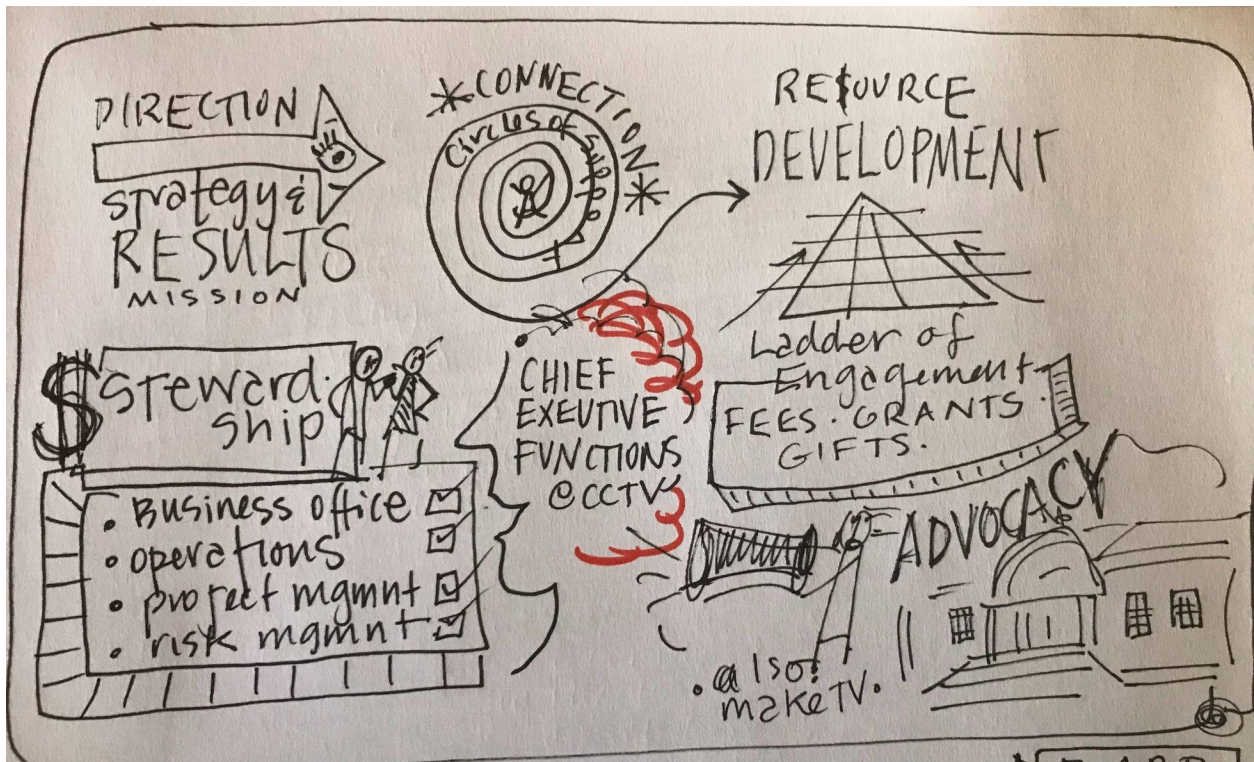 DIRECTION
strategy &
RESULTS
MISSION
*CONNECTION*
Circles of support
RE$OURCE
DEVELOPMENT
Ladder of
Engagement
FEES. GRANTS.
GIFTS.
$ Steward
ship
• Business office
• operations
• project mgmnt
• risk mgmnt
CHIEF
EXEUTIVE
FUNCTIONS
@CCTV
ADVOCACY
• also!
make TV.